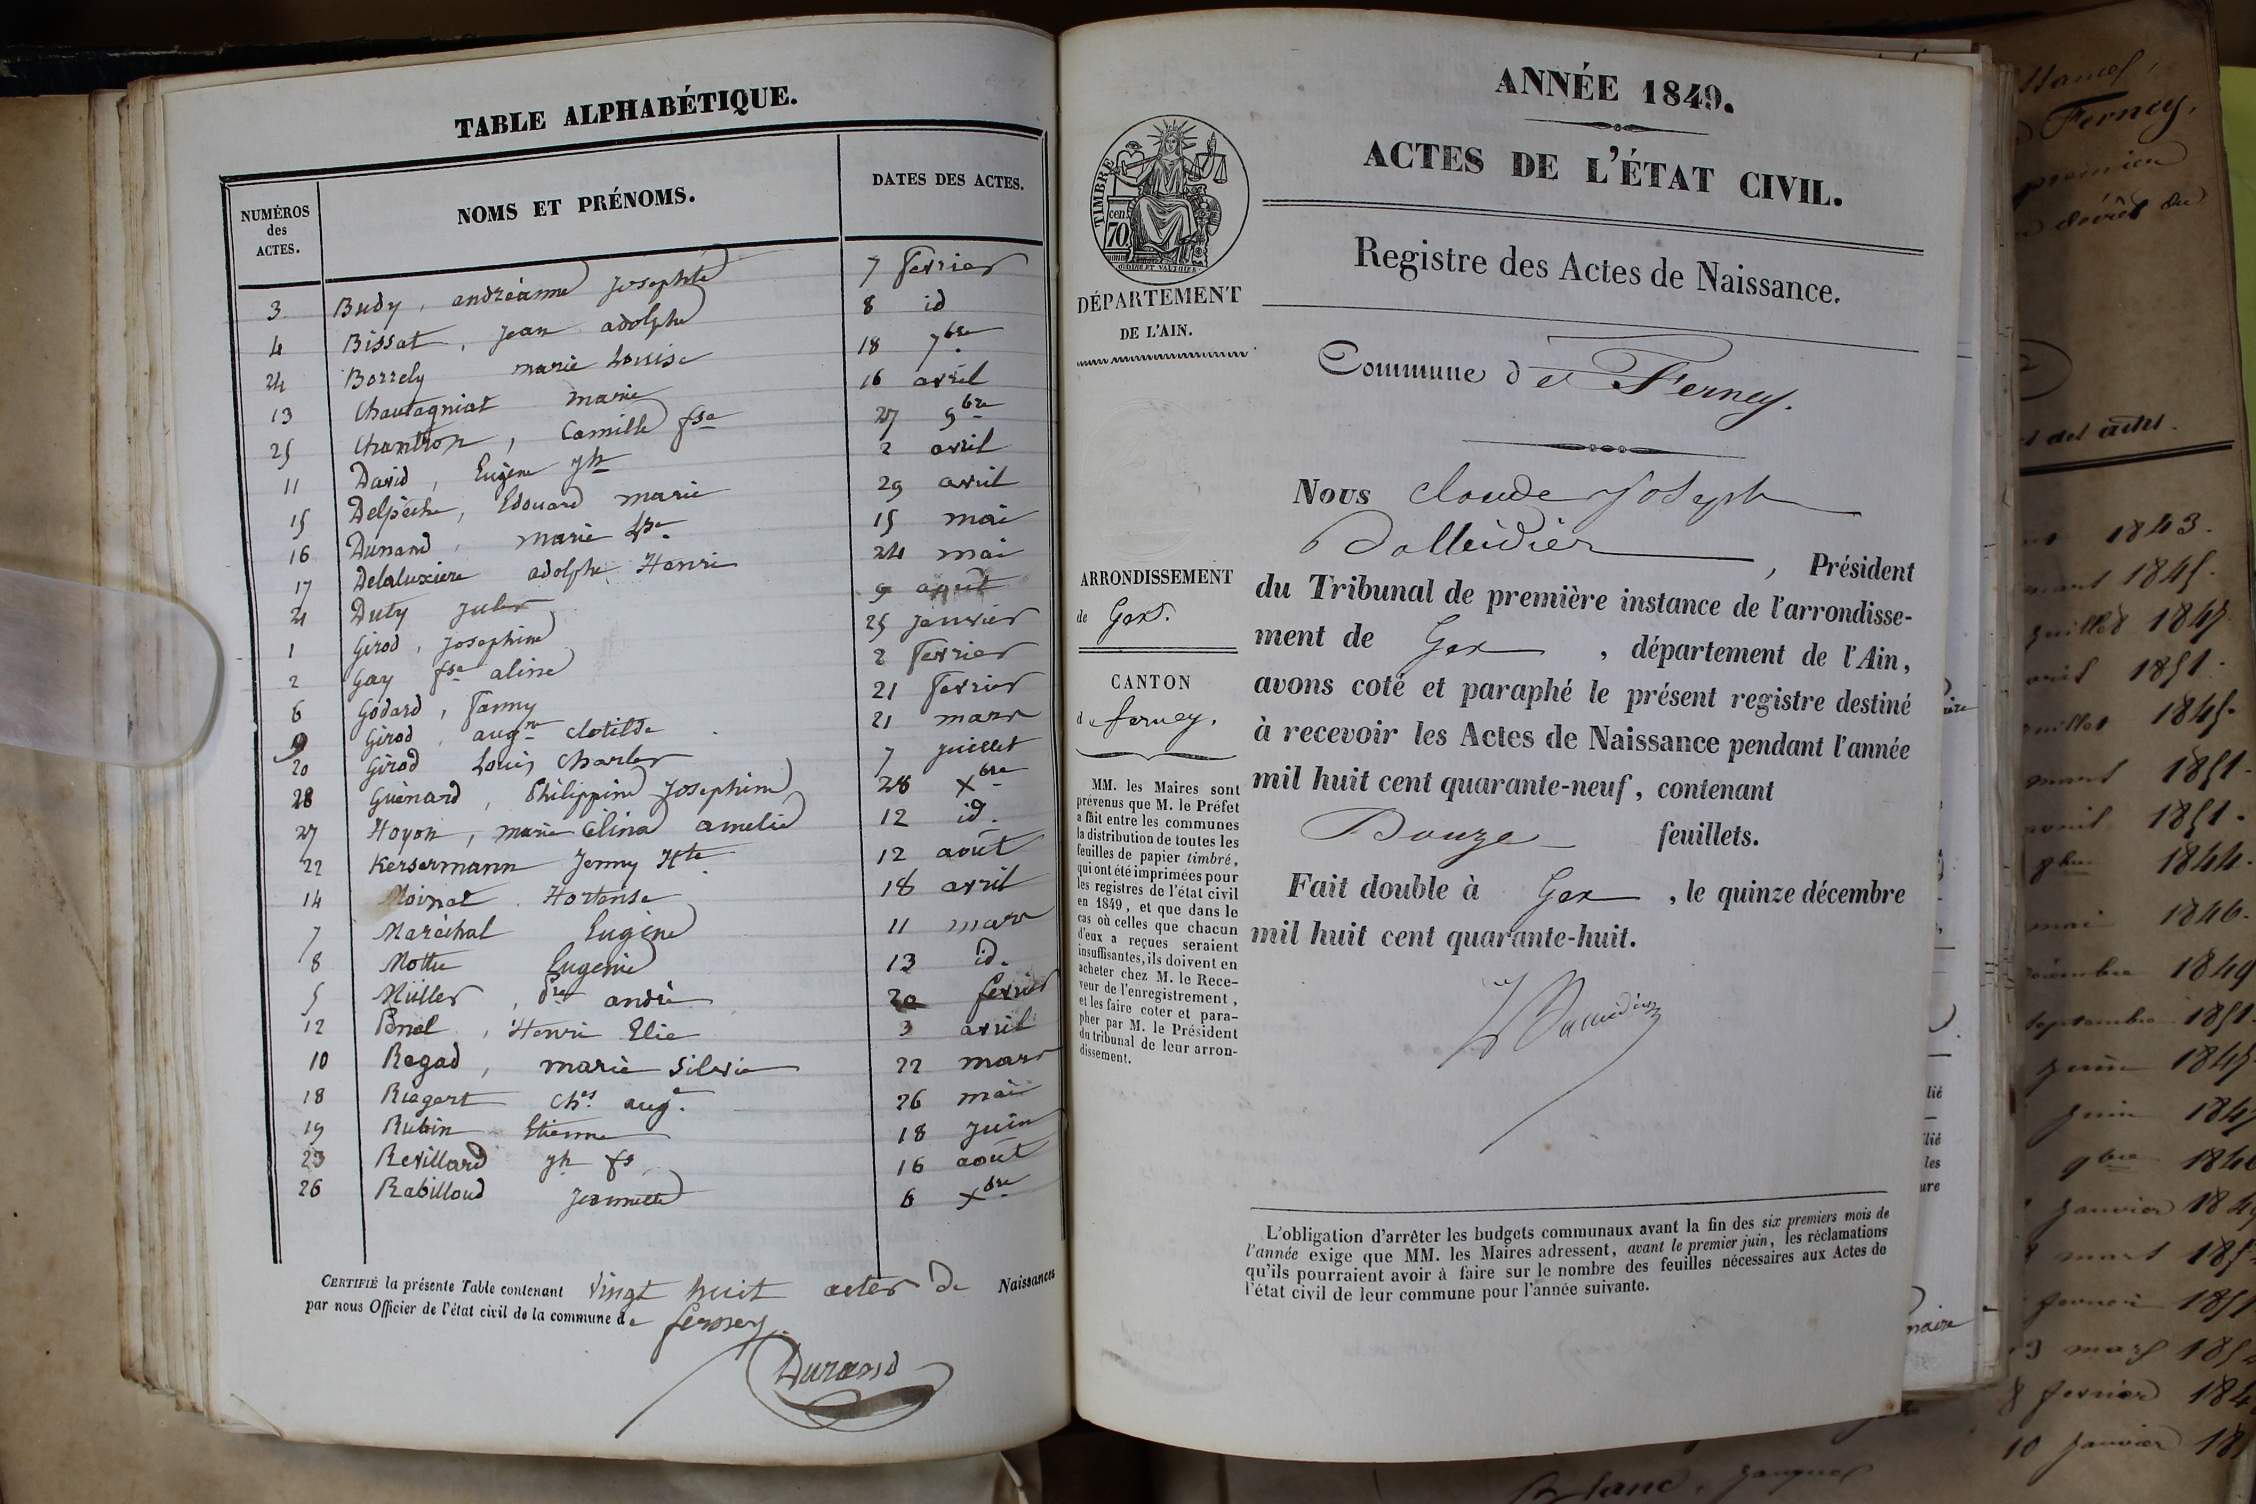 TABLE ALPHABÉTIQUE.
NUMÉROS des ACTES. NOMS ET PRÉNOMS. DATES DES ACTES.
3 Budy, andréanne Josephte 7 fevrier
4 Bissat, Jean adolphe 8 id
24 Borrely marie Louise 18 7bre
13 Chautagniat marie 16 avril
25 Chambon, Camille fse 27 9bre
11 David, Eugène Jh 2 avril
15 Delpèche, Edouard marie 29 avril
16 Dunand, marie Lse 15 mai
17 Delaluxiere adolphe Henri 24 mai
21 Duty Jules 9 août
1 Girod, Josephine 25 Janvier
2 Gay fse aline 2 fevrier
6 Godard, Fanny 21 fevrier
9 Girod, augne Clotilde 21 mars
20 Girod Louis Charles 7 Juillet
28 Guenard, Philippine Josephine 28 Xbre
27 Hoyon, marie Célina amelie 12 id.
22 Kersermann Jenny Hte 12 août
14 Moinat Hortense 18 avril
7 Maréchal Eugène 11 mars
8 Mottu Eugenie 13 id.
5 Müller, andré 20 fevrier
12 Henri Elie 3 avril
10 Regad, marie Silvie 22 mars
18 Riegert Chs. auge. 26 mai
19 Rubin Etienne 18 Juin
23 Revillard Jh fs 16 août
26 Rabilloud Jeannette 6 Xbre
CERTIFIÉ la présente Table contenant vingt huit actes de Naissances
par nous Officier de l'état civil de la commune de ferney.
Durand
ANNÉE 1849.
ACTES DE L'ÉTAT CIVIL.
Registre des Actes de Naissance.
TIMBRE
cen. 70
DÉPARTEMENT
DE L'AIN.
Commune de Ferney.
Nous Claude Joseph
, Président
du Tribunal de première instance de l'arrondisse-
ment de Gex, département de l'Ain,
avons coté et paraphé le présent registre destiné
à recevoir les Actes de Naissance pendant l'année
mil huit cent quarante-neuf, contenant
Douze feuillets.
Fait double à Gex, le quinze décembre
mil huit cent quarante-huit.
ARRONDISSEMENT
de Gex.
CANTON
de ferney.
MM. les Maires sont
prévenus que M. le Préfet
a fait entre les communes
la distribution de toutes les
feuilles de papier timbré,
qui ont été imprimées pour
les registres de l'état civil
en 1849, et que dans le
cas où celles que chacun
d'eux a reçues seraient
insuffisantes, ils doivent en
acheter chez M. le Rece-
veur de l'enregistrement,
et les faire coter et para-
pher par M. le Président
du tribunal de leur arron-
dissement.
L'obligation d'arrêter les budgets communaux avant la fin des six premiers mois de
l'année exige que MM. les Maires adressent, avant le premier juin, les réclamations
qu'ils pourraient avoir à faire sur le nombre des feuilles nécessaires aux Actes de
l'état civil de leur commune pour l'année suivante.
Ferney,
premier
décrèt du
1843.
1845.
Juillet 1847
avril 1851.
Juillet 1845.
mars 1851.
avril 1851.
9bre 1844.
mai 1846.
1849
septembre 1851.
Juin 1845
Juin 1847
9bre
Janvier
mars
fevrier 1851
mars
8 fevrier
10 Janvier
Blanc, Jacques